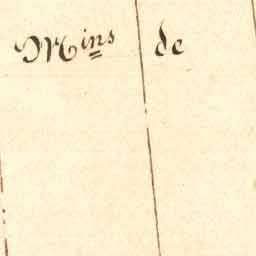 Mins de